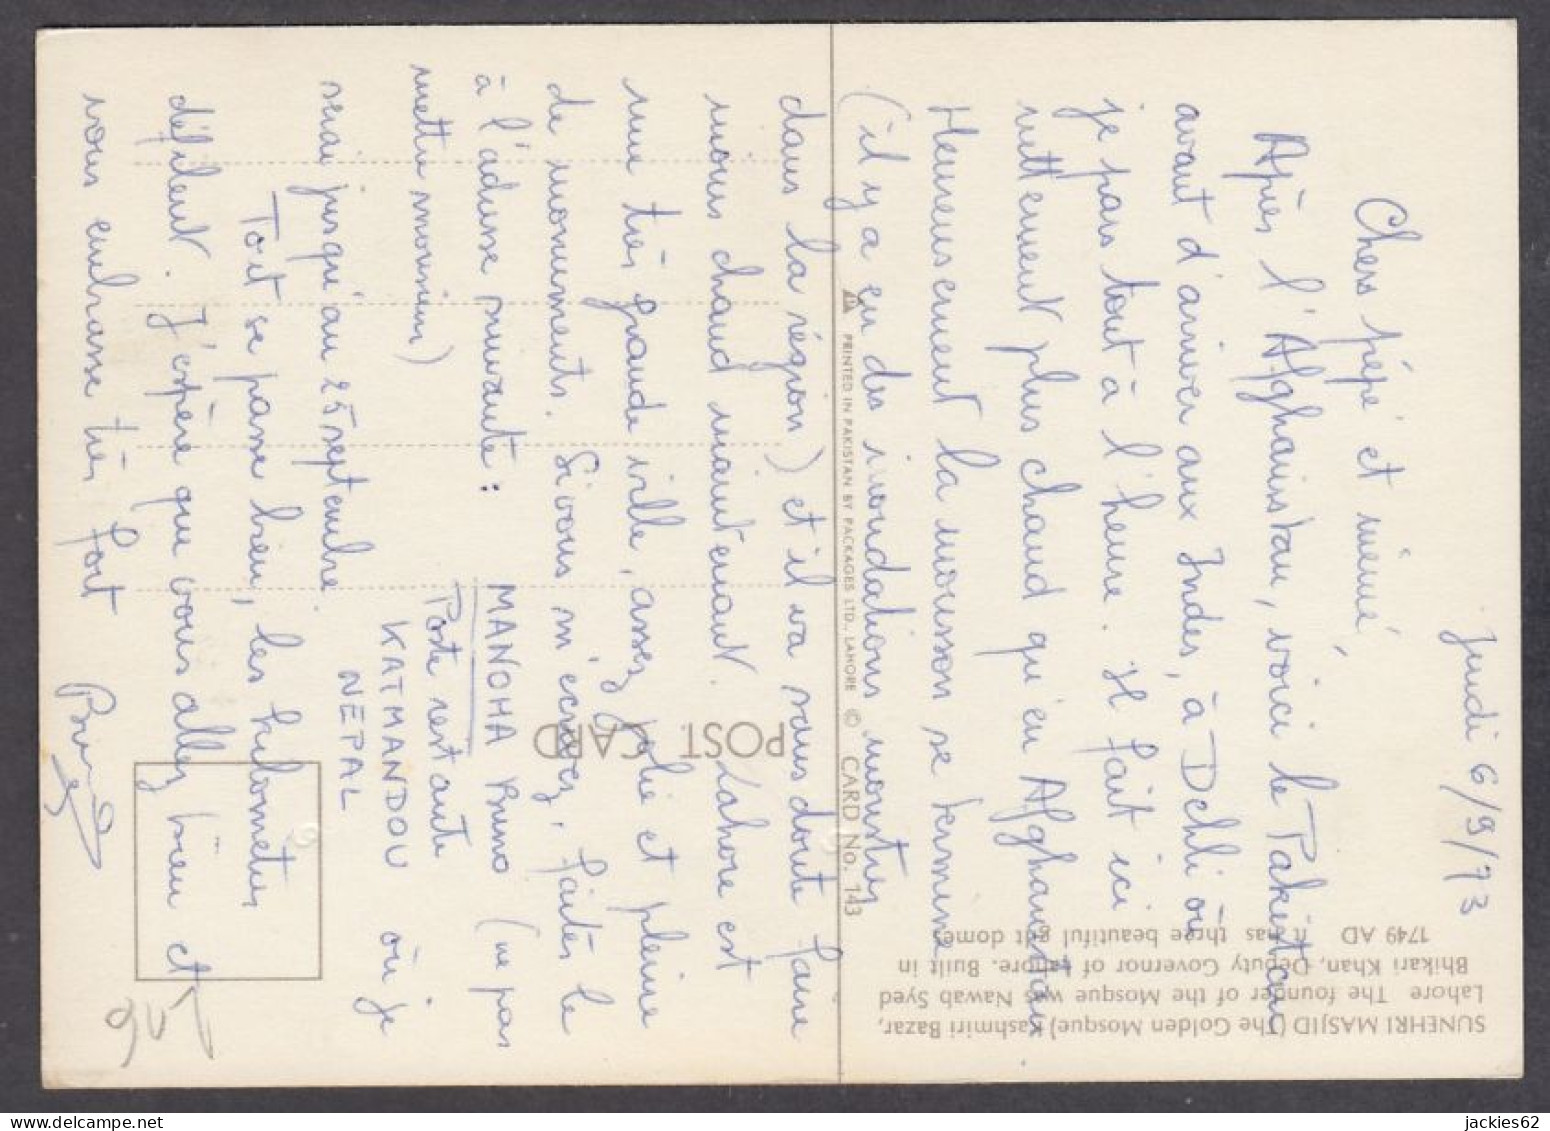 Jeudi 6/9/73
Chers pépé et mémé,
Après l'Afghanistan, voici le Pakistan
avant d'arriver aux Indes, à Dehli où
je pars tout à l'heure. Il fait ici
nettement plus chaud qu'en Afghanistan.
Heureusement la mousson se termine
(il y a eu des inondations monstres
dans la région) et il va sans doute faire
moins chaud maintenant. Lahore est
une très grande ville, assez jolie et pleine
de monuments. Si vous m'écrivez, faites le
à l'adresse suivante : MANOHA Bruno (ne pas
mettre monsieur)
Poste restante
KATMANDOU où je
NEPAL
serai jusqu'au 25 septembre.
Tout se passe bien, les kilomètres
défilent. J'espère que vous allez bien et
vous embrasse très fort
Bruno
POST CARD
PRINTED IN PAKISTAN BY PACKAGES LTD., LAHORE © CARD No. 143
SUNEHRI MASJID (The Golden Mosque) Kashmiri Bazar,
Lahore The founder of the Mosque was Nawab Syed
Bhikari Khan, Deputy Governor of Lahore. Built in
1749 AD it has three beautiful gilt domes
jackies62